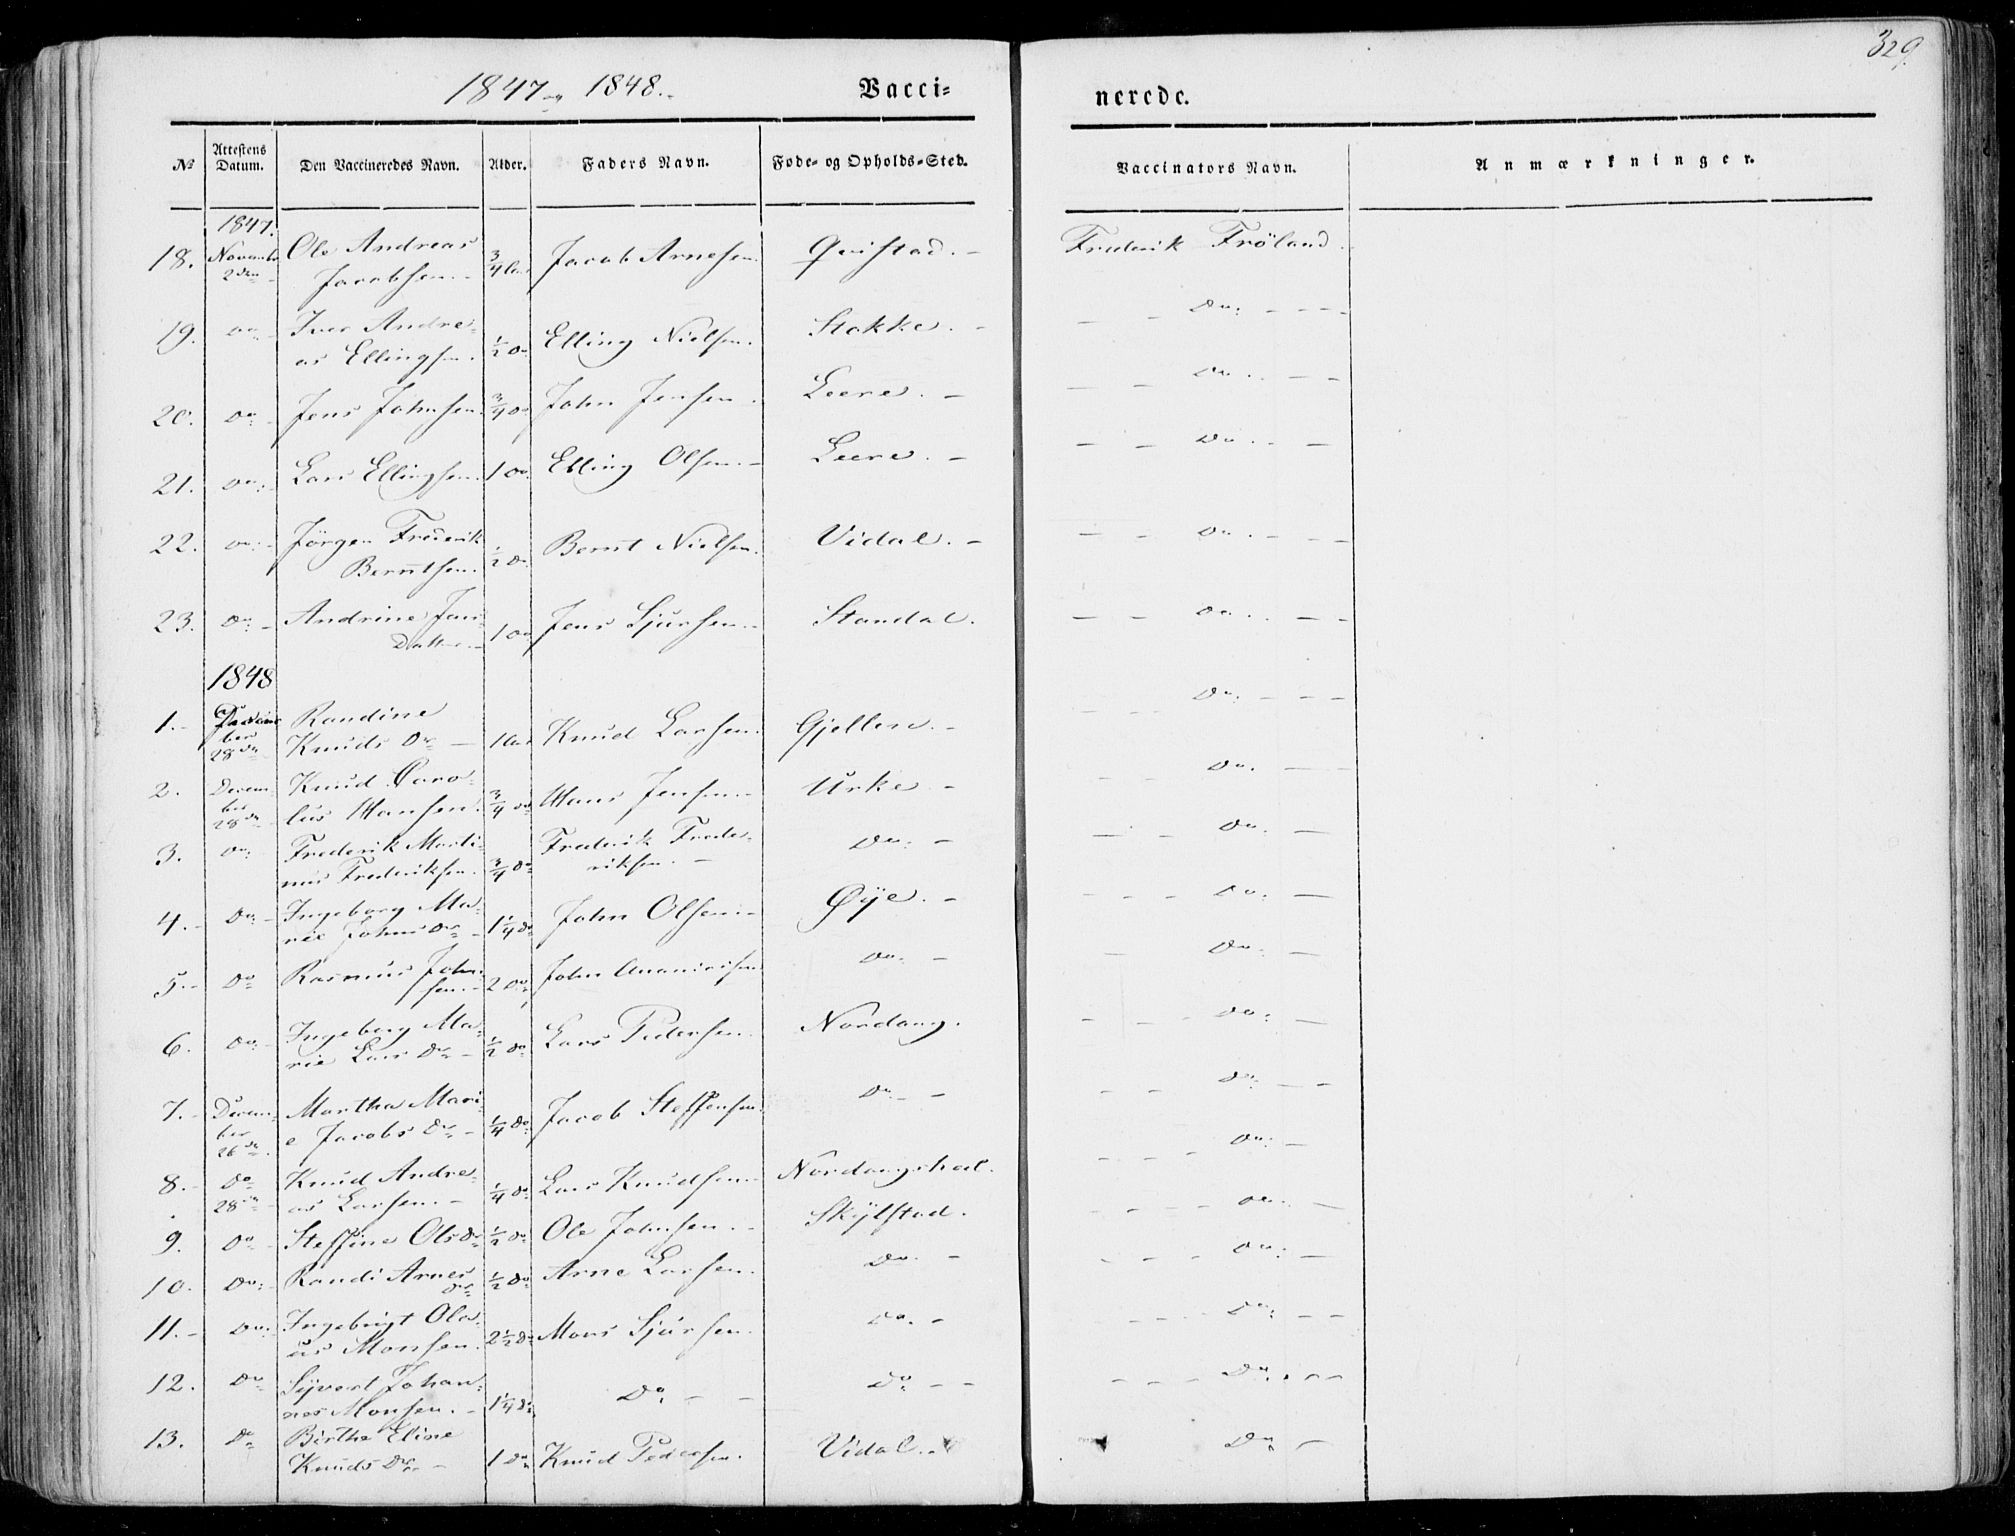 329.
1847 og 1848.
Vaccinerede.
No | Attestens Datum. | Den Vaccineredes Navn. | Alder. | Faders Navn. | Føde- og Opholds-Sted. | Vaccinators Navn. | Anmærkninger.
1847.
18. | Novembr 2den | Ole Andreas Jacobsen. | 3/4 Aar | Jacob Arnesen. | Qvistad. | Frederik Frøland.
19. | Do | Iver Andreas Ellingsen. | 1/2 Do | Elling Nielsen. | Stokke. | Do
20. | Do | Jens Johnsen | 3/4 Do | John Jensen. | Leere. | Do
21. | Do | Lars Ellingsen. | 1 Do | Elling Olsen. | Leere. | Do
22. | Do | Jörgen Frederik Berntsen. | 1/2 Do | Bernt Nielsen. | Vidal. | Do
23. | Do | Andrine Jens Datter. | 1 Do | Jens Sjursen. | Standal. | Do
1848
1. | December 28de | Randine Knuds Dr | 1 Aar | Knud Larsen. | Gjellen. | Do
2. | December 28de | Knud Carolus Hansen. | 3/4 Do | Hans Jensen. | Urke. | Do
3. | Do | Frederik Martinus Frederiksen. | 3/4 Do | Frederik Frederiksen. | Do | Do
4. | Do | Ingeborg Marie Johns Dr | 1 1/4 Do | John Olsen. | Øye. | Do
5. | Do | Rasmus Johnsen. | 2 Do | John Ananiasen | Do | Do
6. | Do | Ingeborg Marie Lars Dr | 1/2 Do | Lars Pedersen. | Nordang. | Do
7. | December 26de | Martha Marie Jacobs Dr | 1/4 Do | Jacob Steffensen. | Do | Do
8. | Do 28de | Knud Andreas Larsen. | 1/4 Do | Lars Knudsen. | Nordangshal. | Do
9. | Do | Steffine Ols Dr | 1/2 Do | Ole Johnsen. | Skylstad. | Do
10. | Do | Randi Arnes Dr | 1/2 Do | Arne Larsen. | Do | Do
11. | Do | Ingebrigt Oleus Monsen. | 2 1/2 Do | Mons Sjursen. | Do | Do
12. | Do | Syvert Johannes Monsen. | 1 1/4 Do | Do | Do | Do
13. | Do | Birthe Eline Knuds Dr | 1 Do | Knud Pedersen. | Vidal. | Do